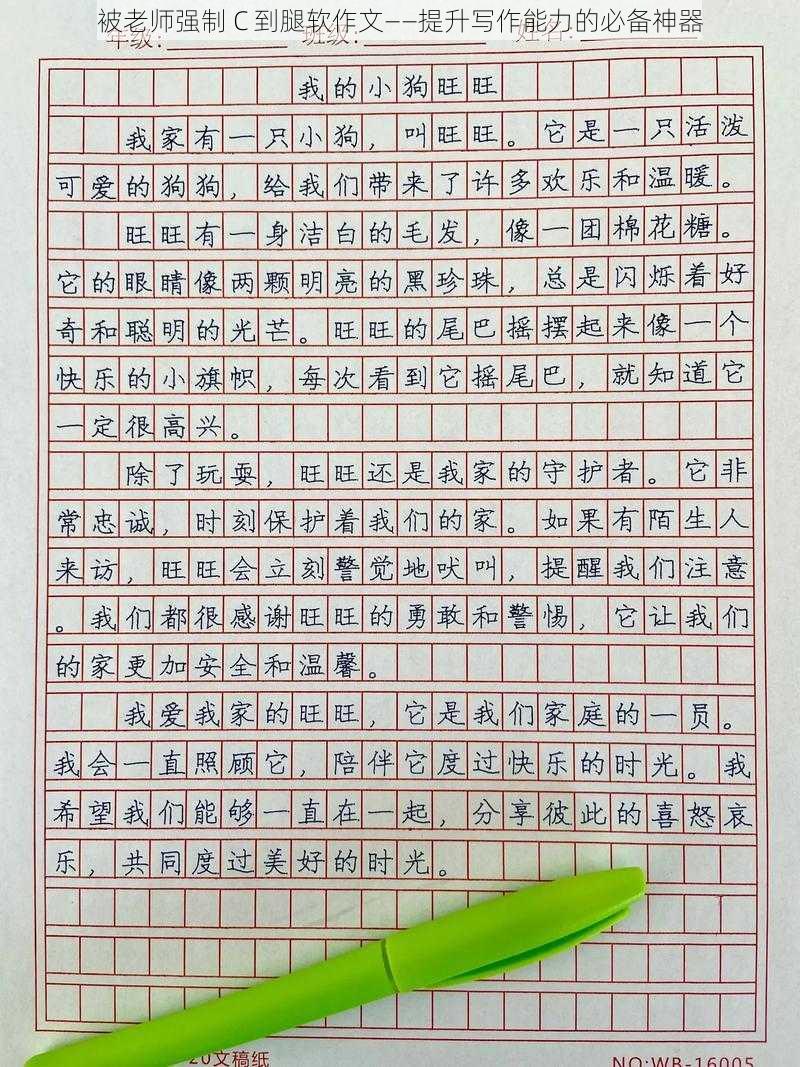 被老师强制 C 到腿软作文——提升写作能力的必备神器
年级: 班级: 姓名:
我的小狗旺旺
我家有一只小狗，叫旺旺。它是一只活泼
可爱的狗狗，给我们带来了许多欢乐和温暖。
旺旺有一身洁白的毛发，像一团棉花糖。
它的眼睛像两颗明亮的黑珍珠，总是闪烁着好
奇和聪明的光芒。旺旺的尾巴摇摆起来像一个
快乐的小旗帜，每次看到它摇尾巴，就知道它
一定很高兴。
除了玩耍，旺旺还是我家的守护者。它非
常忠诚，时刻保护着我们的家。如果有陌生人
来访，旺旺会立刻警觉地吠叫，提醒我们注意
。我们都很感谢旺旺的勇敢和警惕，它让我们
的家更加安全和温馨。
我爱我家的旺旺，它是我们家庭的一员。
我会一直照顾它，陪伴它度过快乐的时光。我
希望我们能够一直在一起，分享彼此的喜怒哀
乐，共同度过美好的时光。
20文稿纸
NO:WB-16005